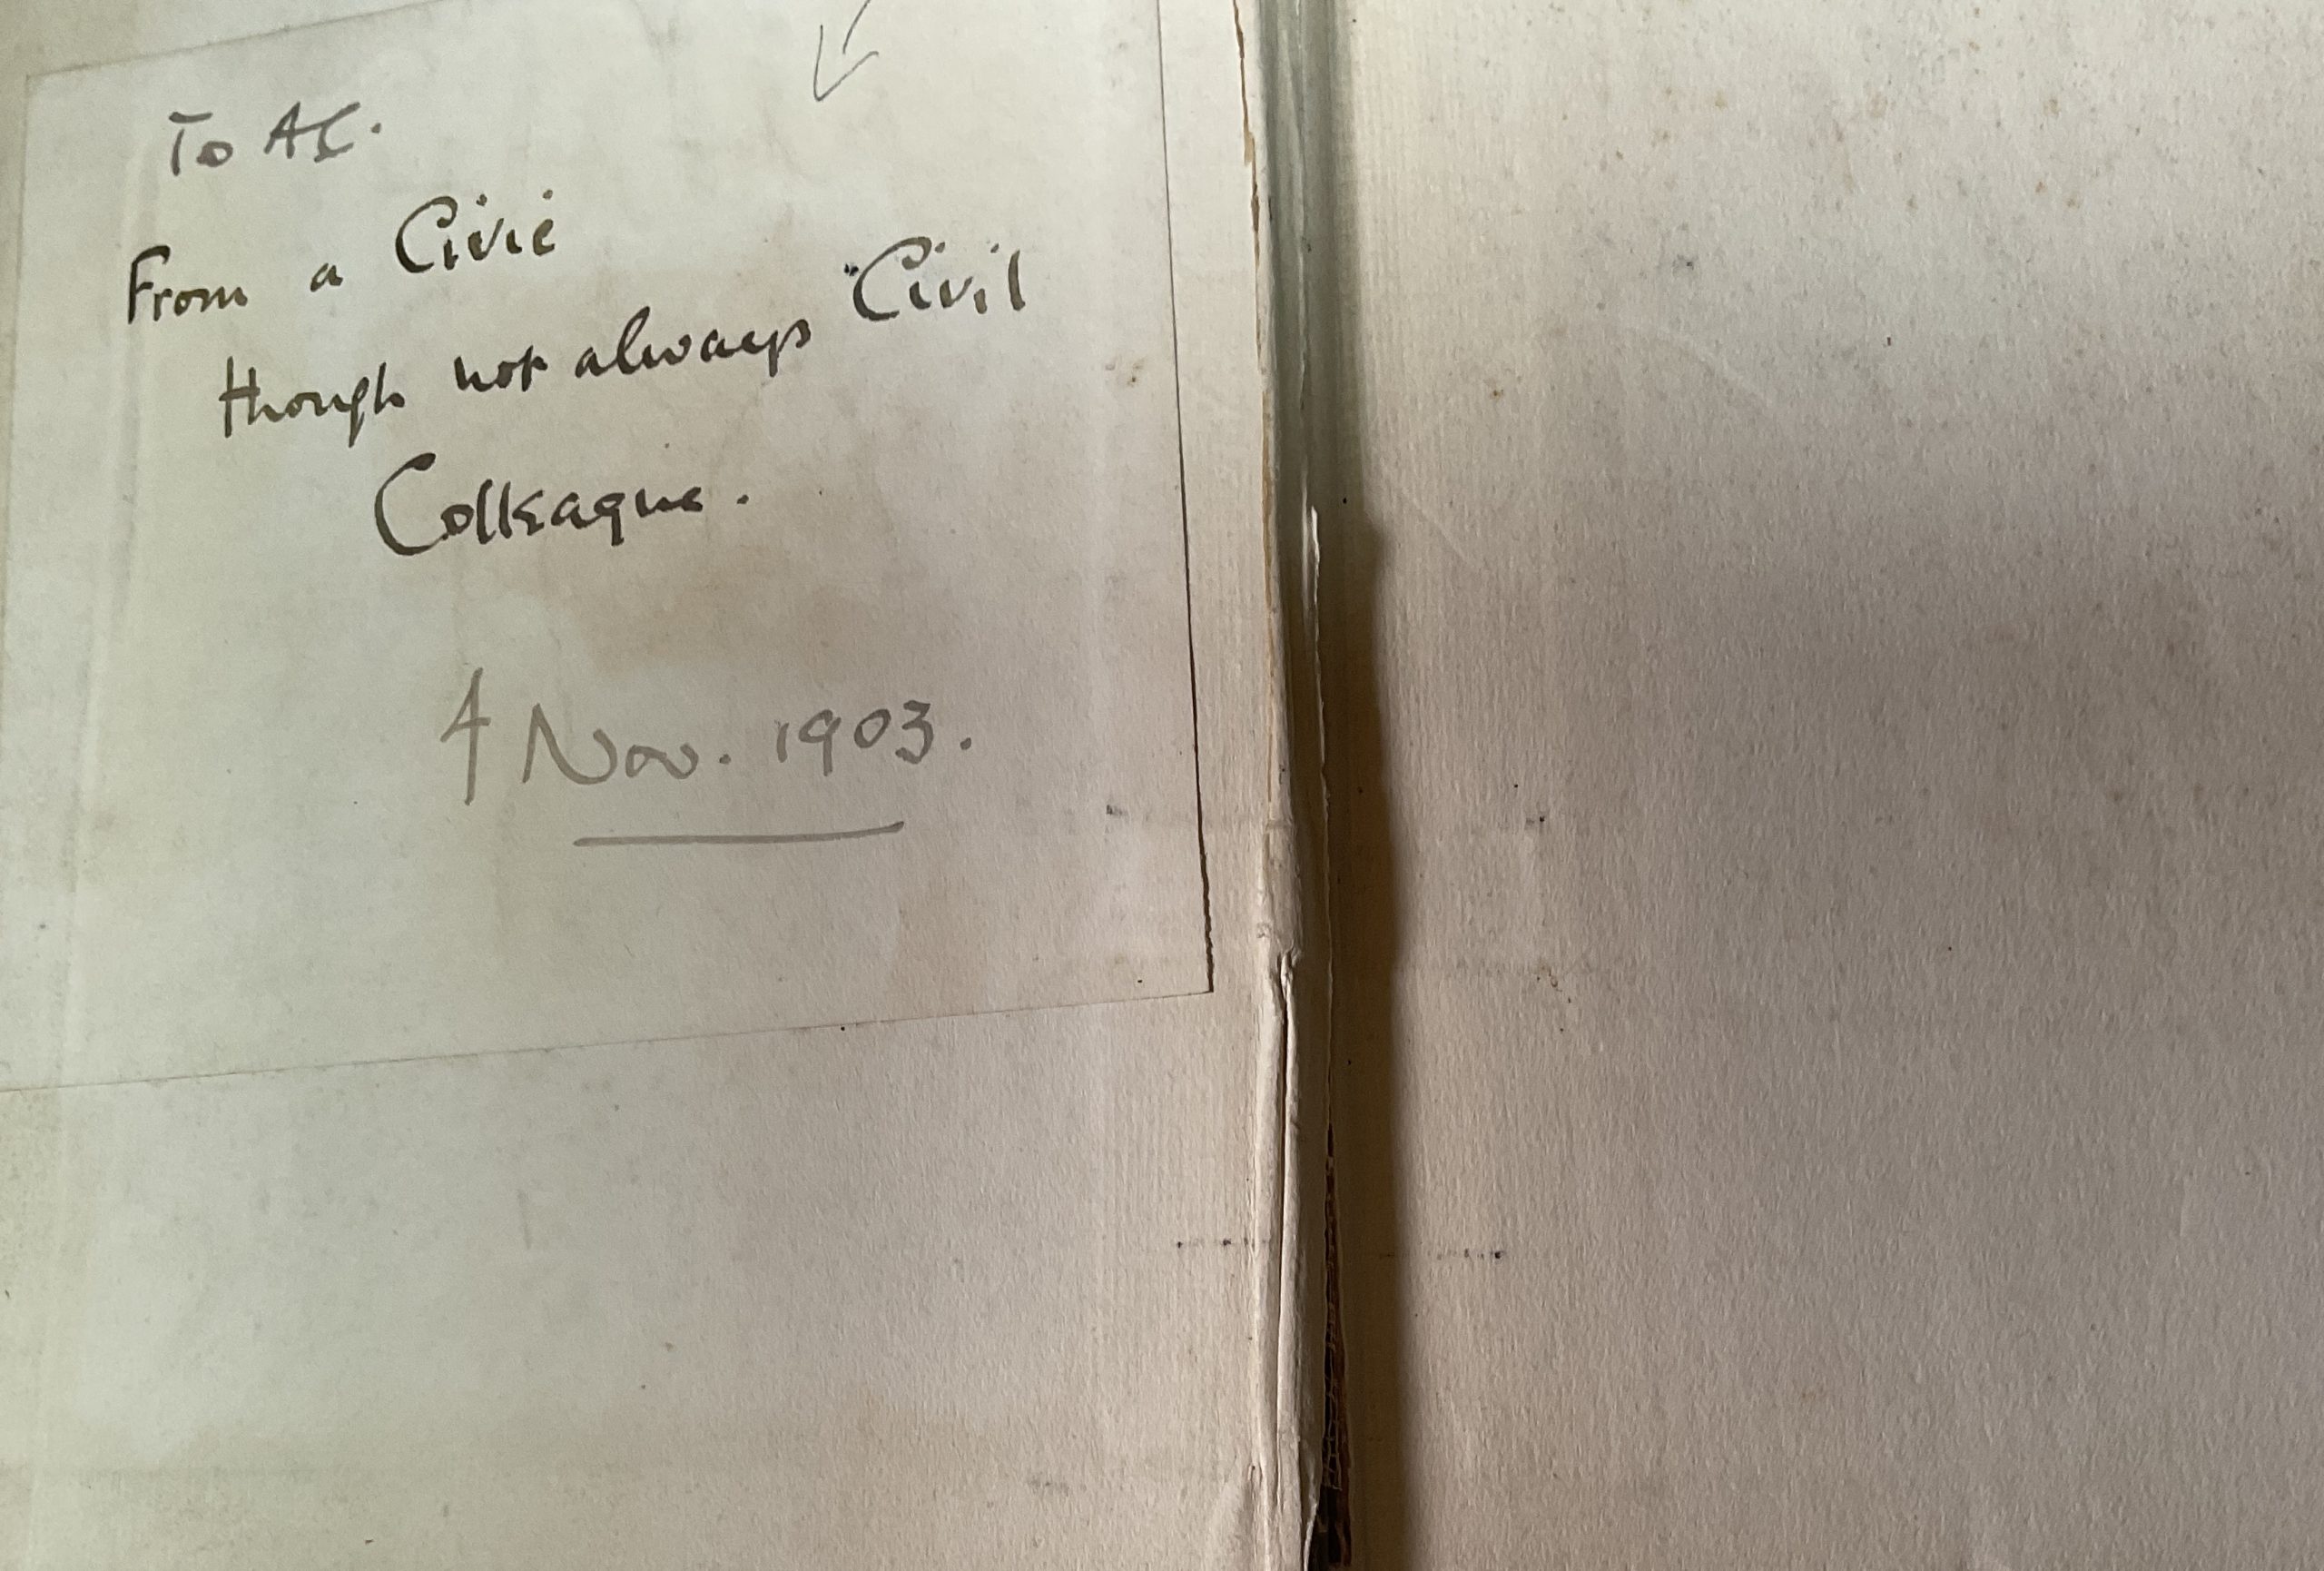 To AG.
From a Civic
though not always Civil
Colleague.
4 Nov. 1903.